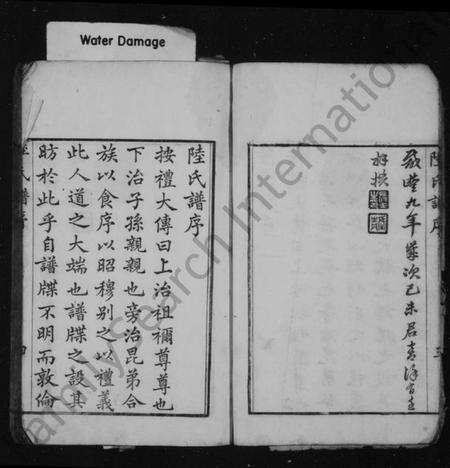 Water Damage
陸氏譜序
咸豐九年歲次己未
陸氏譜序
按禮大傳曰上治祖禰尊尊也
下治子孫親親也旁治昆弟合
族以食序以昭穆別之以禮義
此人道之大端也譜牒之設其
昉於此乎自譜牒不明而敦倫
陸氏譜序
FamilySearch International